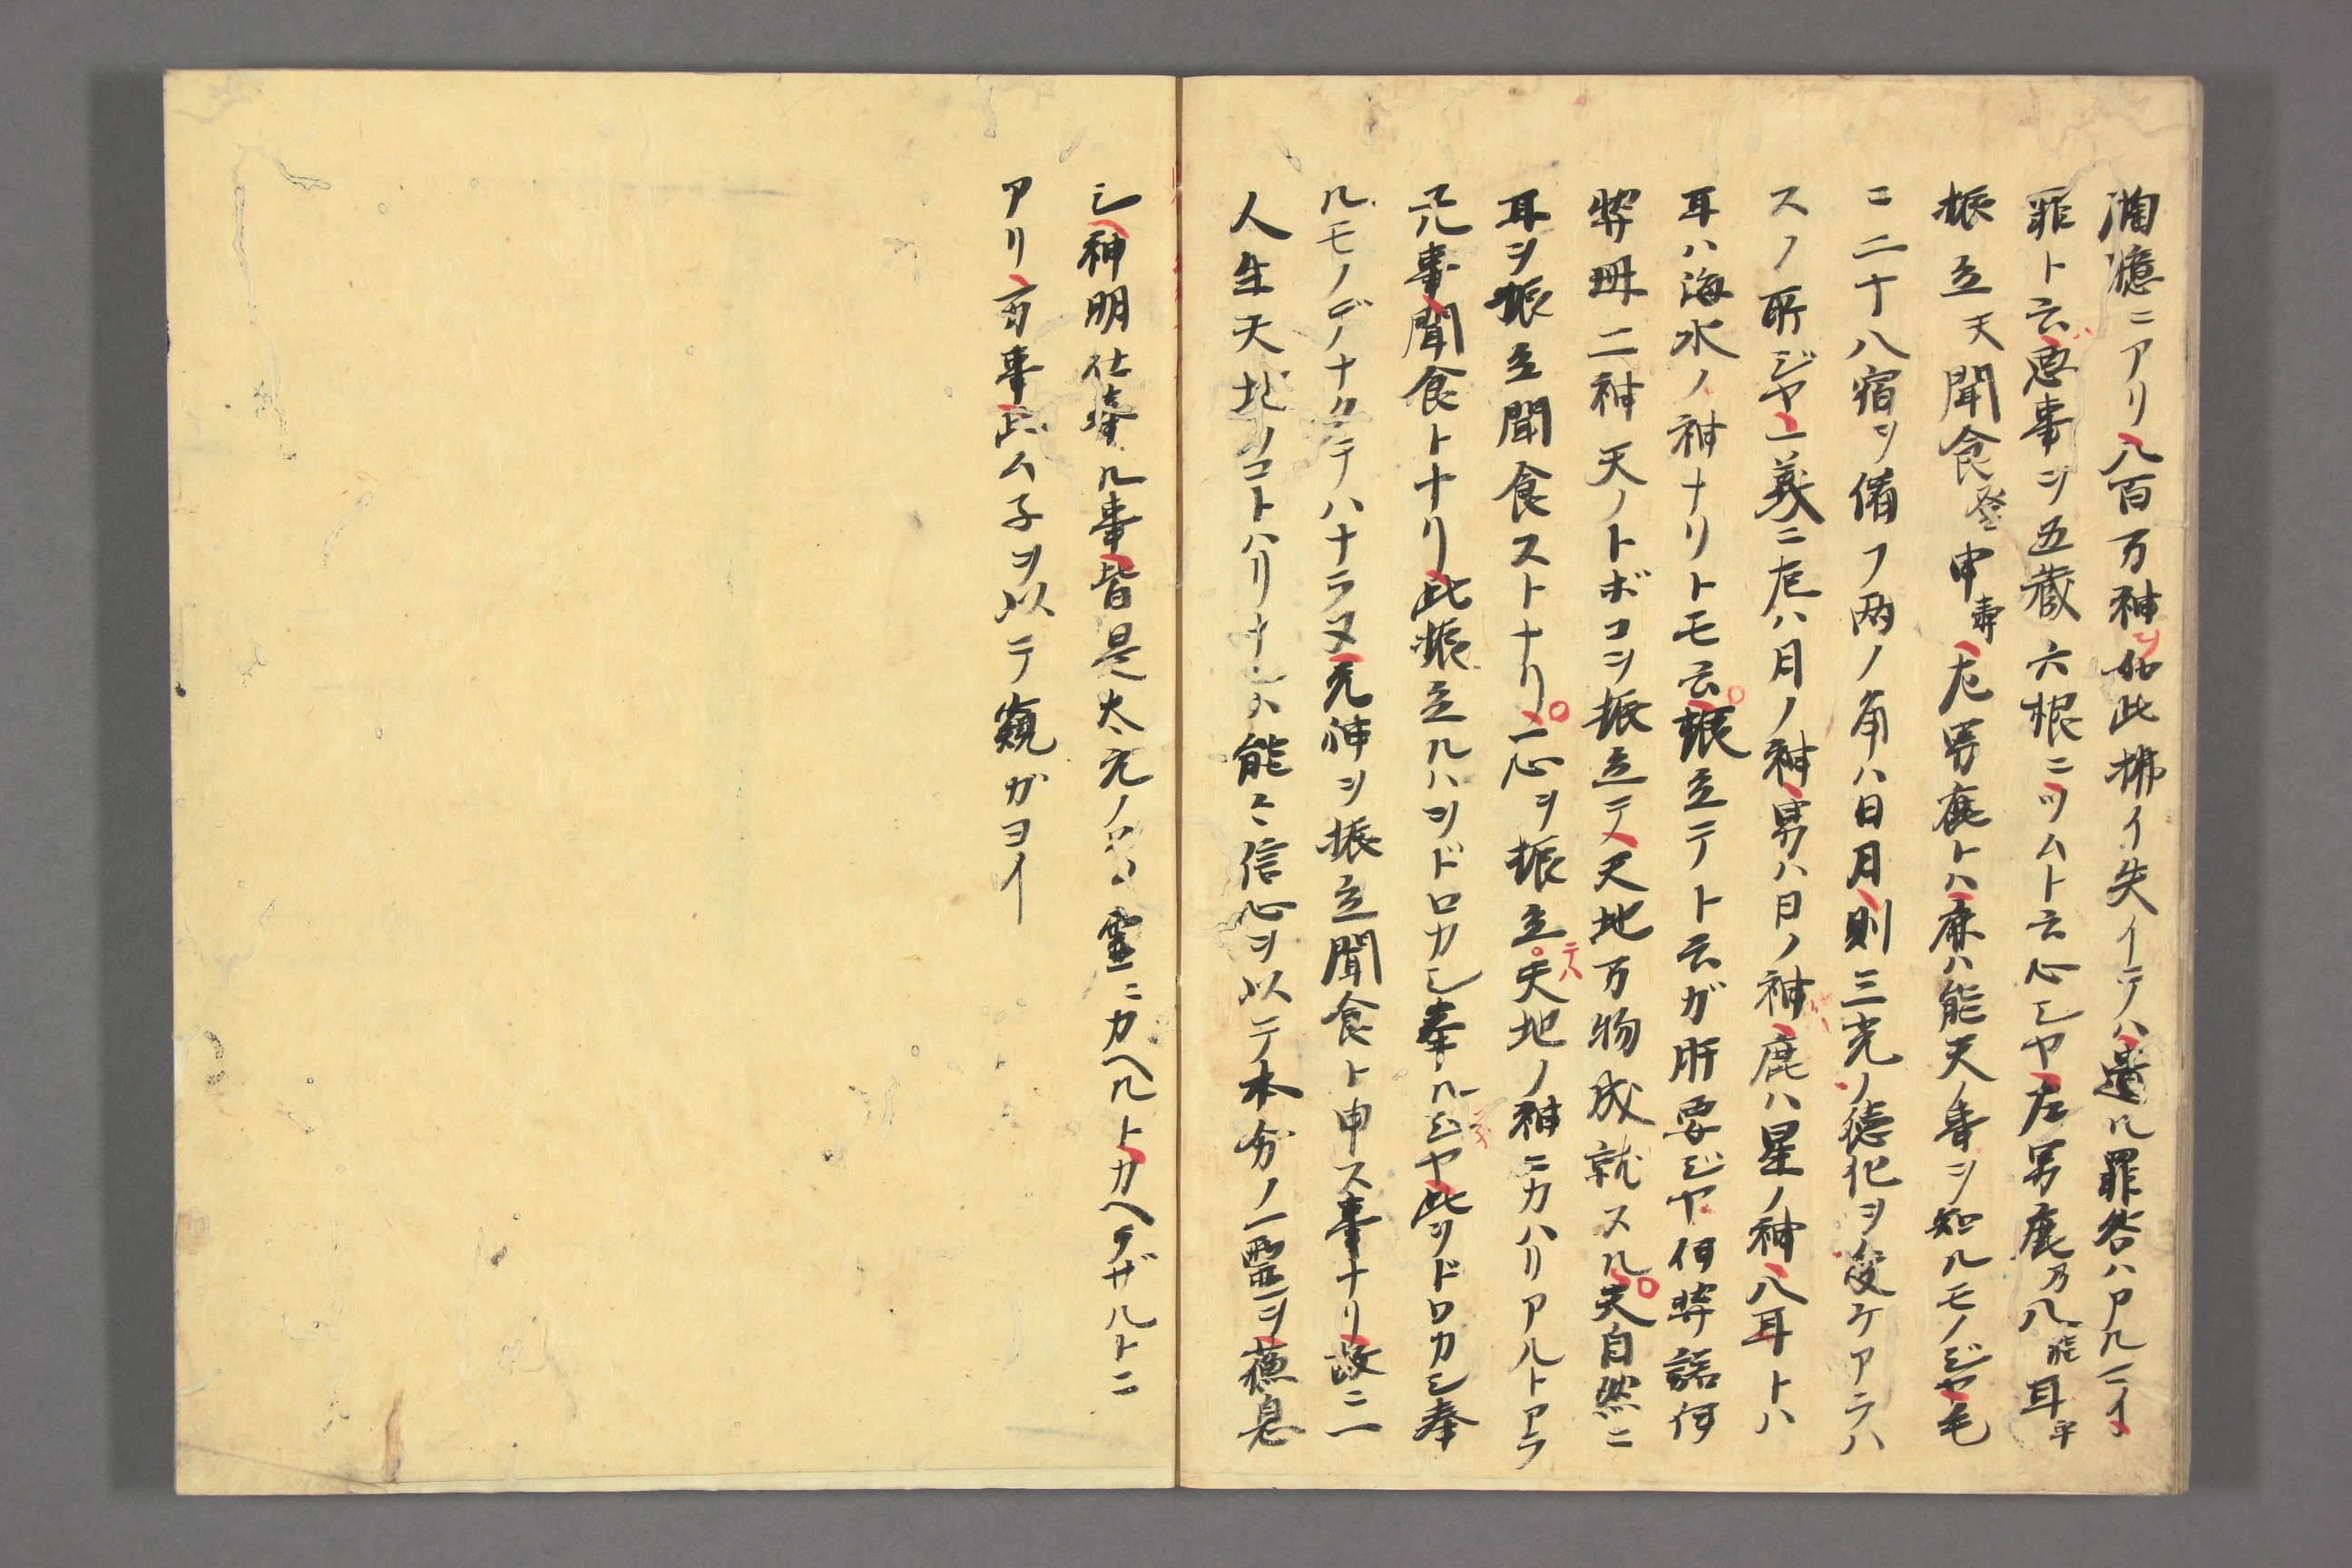 胸憶ニアリ八百万神ヲ此拂イ失イテハ遺ル罪咎ハアルニイ
罪ト云悪事ヲ五蔵六根ニツムト云心ジヤ左男鹿乃八能耳乎
振立天聞食登申寿左男鹿トハ鹿ハ能天ノ事ヲ知ルモノジヤ毛
ニ二十八宿ヲ備フ两ノ角ハ日月則三光ノ徳犯ヲ受ケアラハ
スノ所ジヤ一義ニ左ハ月ノ神男ハ日ノ神鹿ハ星ノ神八耳トハ
耳ハ海水ノ神ナリトモ云振立テト云ガ肝要ジヤ何弉諾何
弉冊二神天ノトボコヲ振立テ天地万物成就スル天自然ニ
耳ヲ振立聞食ストナリ一心ヲ振立テハ天地ノ神ニカハリアルトアラ
ユル事聞食トナリ此振立ルハヲドロカシ奉ルジヤ此ヲドロカシ奉
ルモノデノナクテハナラヌ元神ヲ振立聞食ト申ス事ナリ故ニ一
人生天地ノコトハリナシ能々信心ヲ以テ本分ノ一霊ヲ蘓息
シ神明仕奉ル事皆是太元ノ霊ニカヘルトカヘラザルトニ
アリ万事此ム子ヲ以テ窺ガヨイ